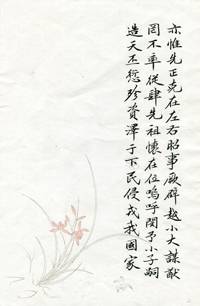 亦惟先正克在左右昭事厥辟越小大謀猷
罔不率從肆先祖懷在位嗚呼閔予小子嗣
造天丕愆殄資澤于下民侵戎我國家